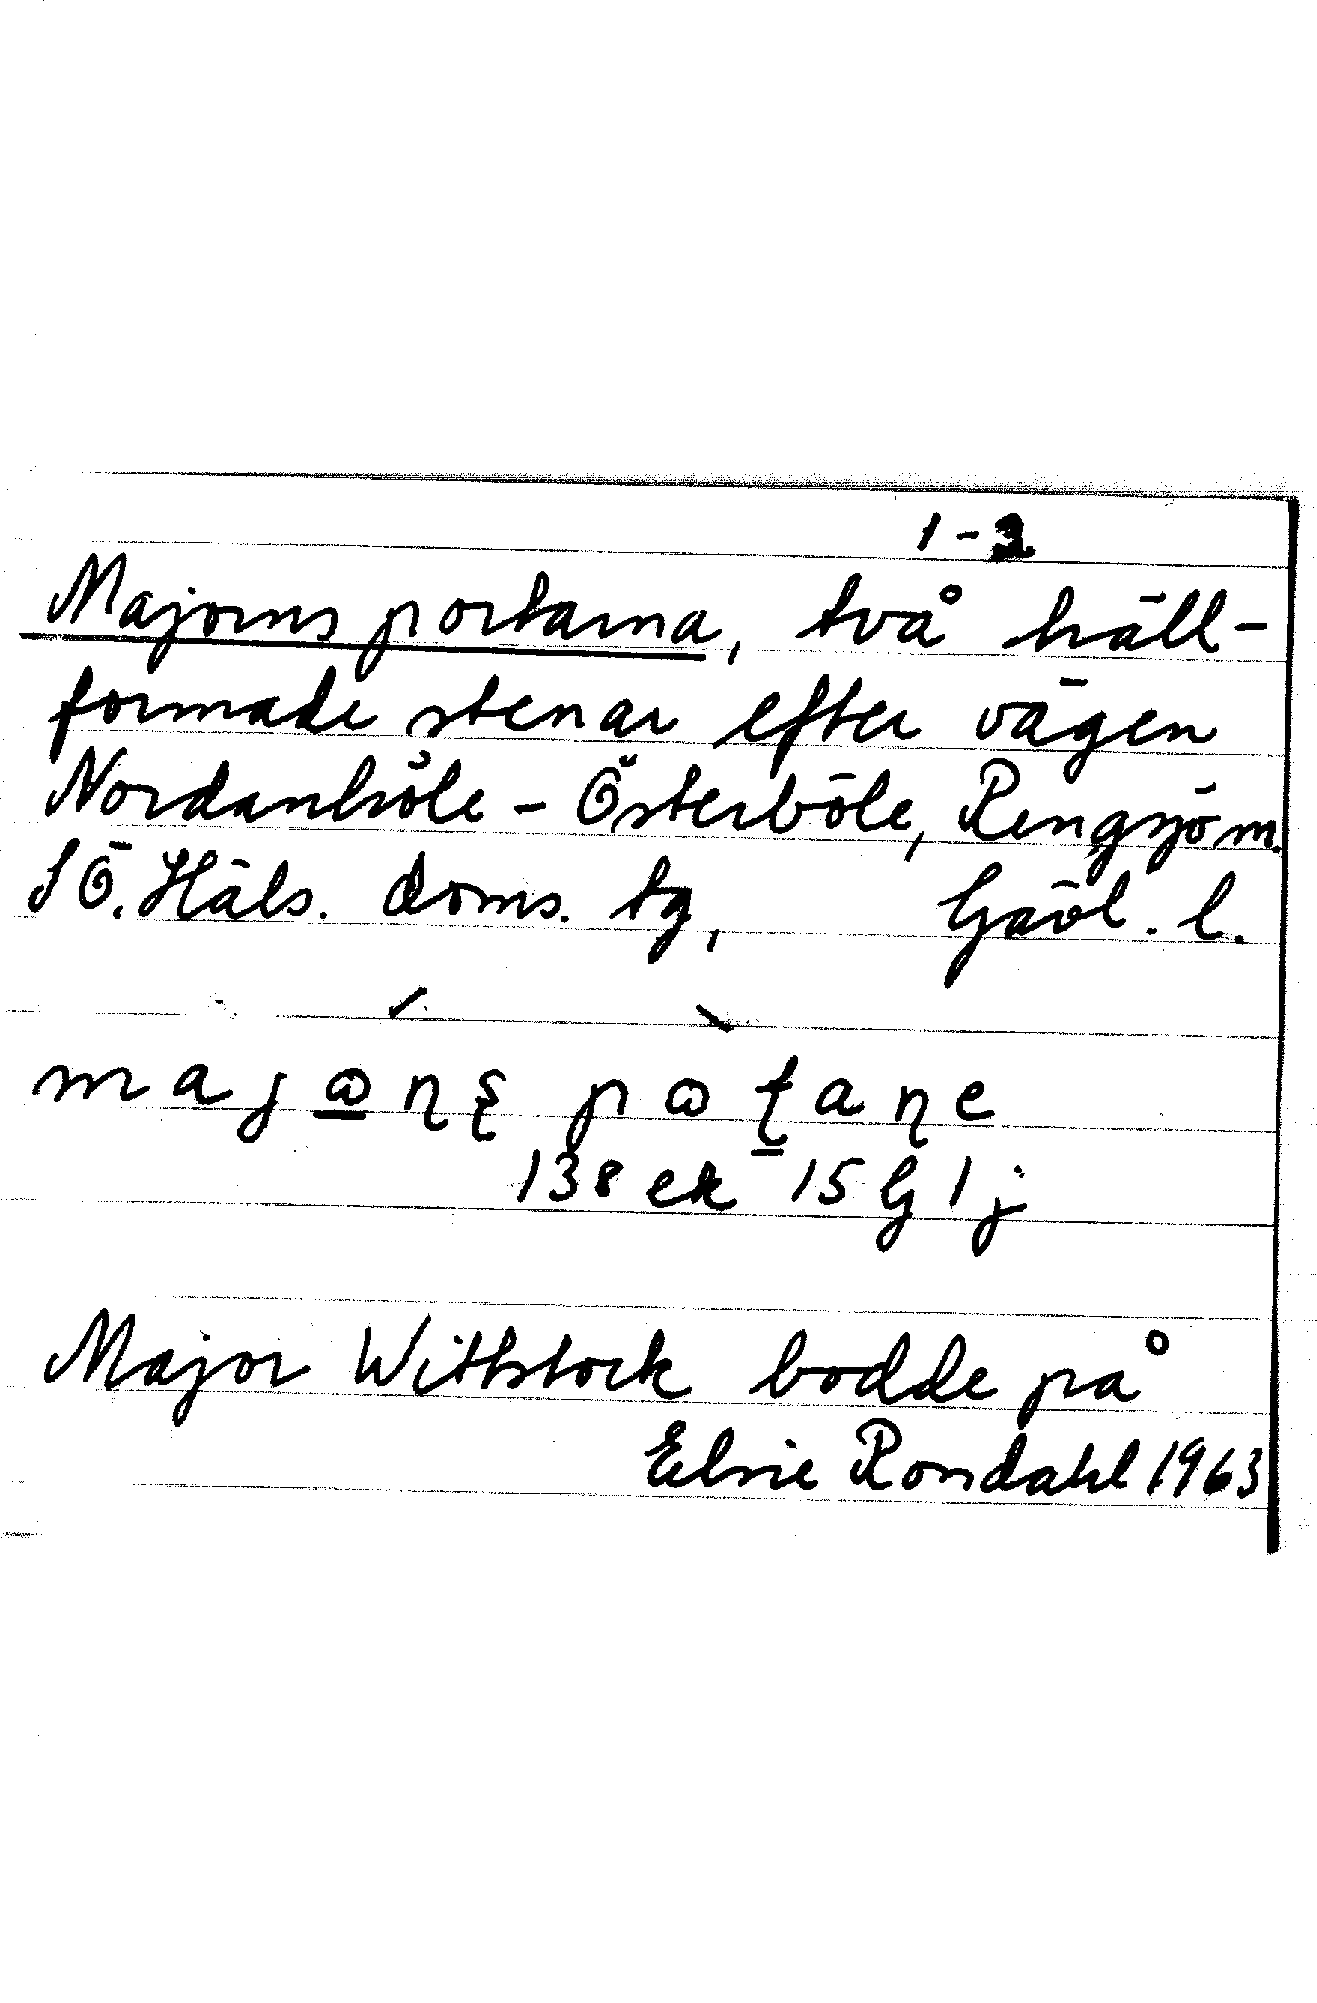 1-2
Majorns portarna, två häll-
formade stenar efter vägen
Nordanböle - Österböle, Rengsjö m.
SÖ. Häls. doms. tg, Gävl. l.
138 ek 15 G 1 j
Major Wittstock bodde på
Elsie Rondahl 1963